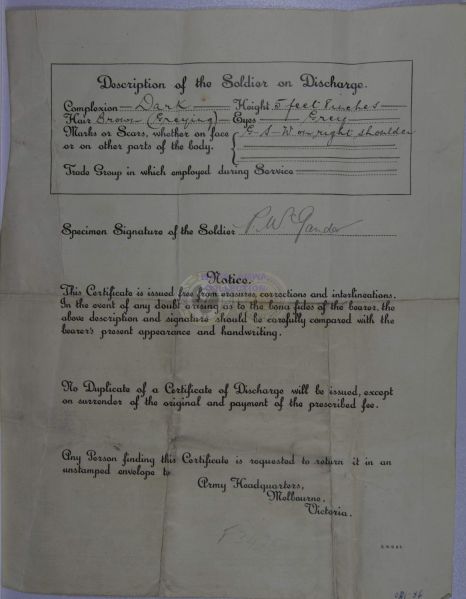 Description of the Soldier on Discharge.
Complexion Dark Height 5 feet 8 inches
Hair Brown (Greying) Eyes Grey
Marks or Scars, whether on face G-S-W on right shoulder
or on other parts of the body.
Trade Group in which employed during Service
Specimen Signature of the Soldier P. W. Gander
Notice.
This Certificate is issued free from erasures, corrections and interlineations.
In the event of any doubt arising as to the bona fides of the bearer, the
above description and signature should be carefully compared with the
bearer's present appearance and handwriting.
No Duplicate of a Certificate of Discharge will be issued, except
on surrender of the original and payment of the prescribed fee.
Any Person finding this Certificate is requested to return it in an
unstamped envelope to
Army Headquarters,
Melbourne,
Victoria.